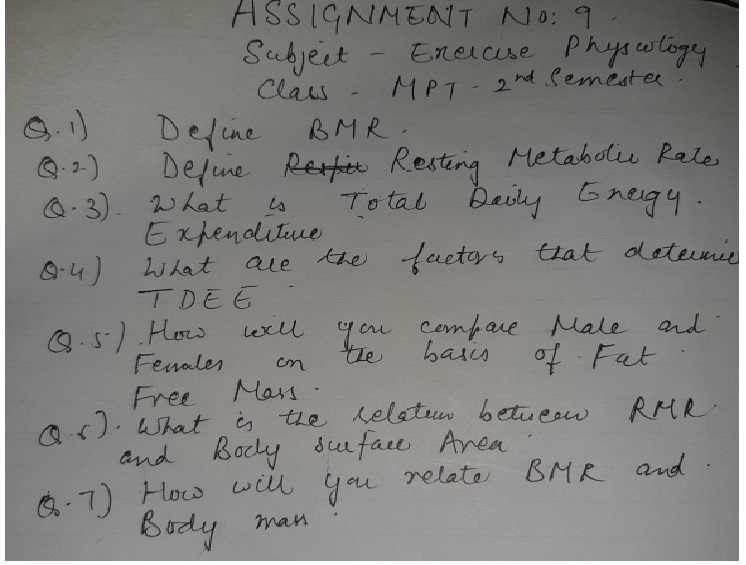 ASSIGNMENT No: 9.
Subject - Exercise Physiology
Class - MPT - 2nd Semester.
Q.1) Define BMR.
Q.2) Define Resting Metabolic Rate
Q.3). What is Total Daily Energy.
Expenditure
Q.4) What are the factors that determine
TDEE
Q.5) How will you compare Male and
Females on the basis of Fat
Free Mass.
Q.6). What is the relation between RMR
and Body surface Area
Q.7) How will you relate BMR and
Body mass.